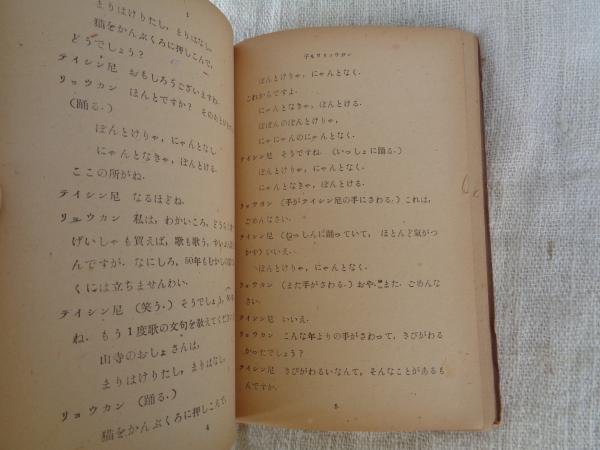 3
まりはけりたし,まりはなし,
猫をかんぶくろに押しこんで,
どうでしょう?
テイシン尼 おもしろうございますね.
リョウカン ほんとですか?
(踊る.)
ぽんとけりゃ,にゃんとなし
にゃんとなきゃ,ぽんとける.
ここの所がね.
テイシン尼 なるほどね.
リョウカン 私は,わかいころ,
げいしゃも買えば,歌も歌う,
んですが,なにしろ,50年もむかし
くには立ちませんわい.
テイシン尼 (笑う.) そうでしょう,
ね.もう1度歌の文句を教えてくだ
山寺のおしょさんは,
まりはけりたし,まりはなし,
リョウカン (踊る.)
猫をかんぶくろに押しこんで,
4
テルサトリョウカン
ぽんとけりゃ,にゃんとなく.
これからですよ.
にゃんとなきゃ,ぽんとける.
ぽぽんのぽんとけりゃ,
にゃにゃんのにゃんとなく.
テイシン尼 そうですね.(いっしょに踊る.)
ぽんとけりゃ,にゃんとなく.
にゃんとなきゃ,ぽんとける.
リョウカン (手がテイシン尼の手にさわる.) これは,
ごめんなさい.
テイシン尼 (ねっしんに踊っていて,ほとんど氣がつ
かず) いいえ.
ぽんとけりゃ,にゃんとなく.
リョウカン (また手がさわる.) おや,また.ごめんな
さい.
テイシン尼 いいえ.
リョウカン こんな年よりの手がさわって,きびがわる
かったでしょう?
テイシン尼 きびがわるいなんて,そんなことがあるも
んですか.
5